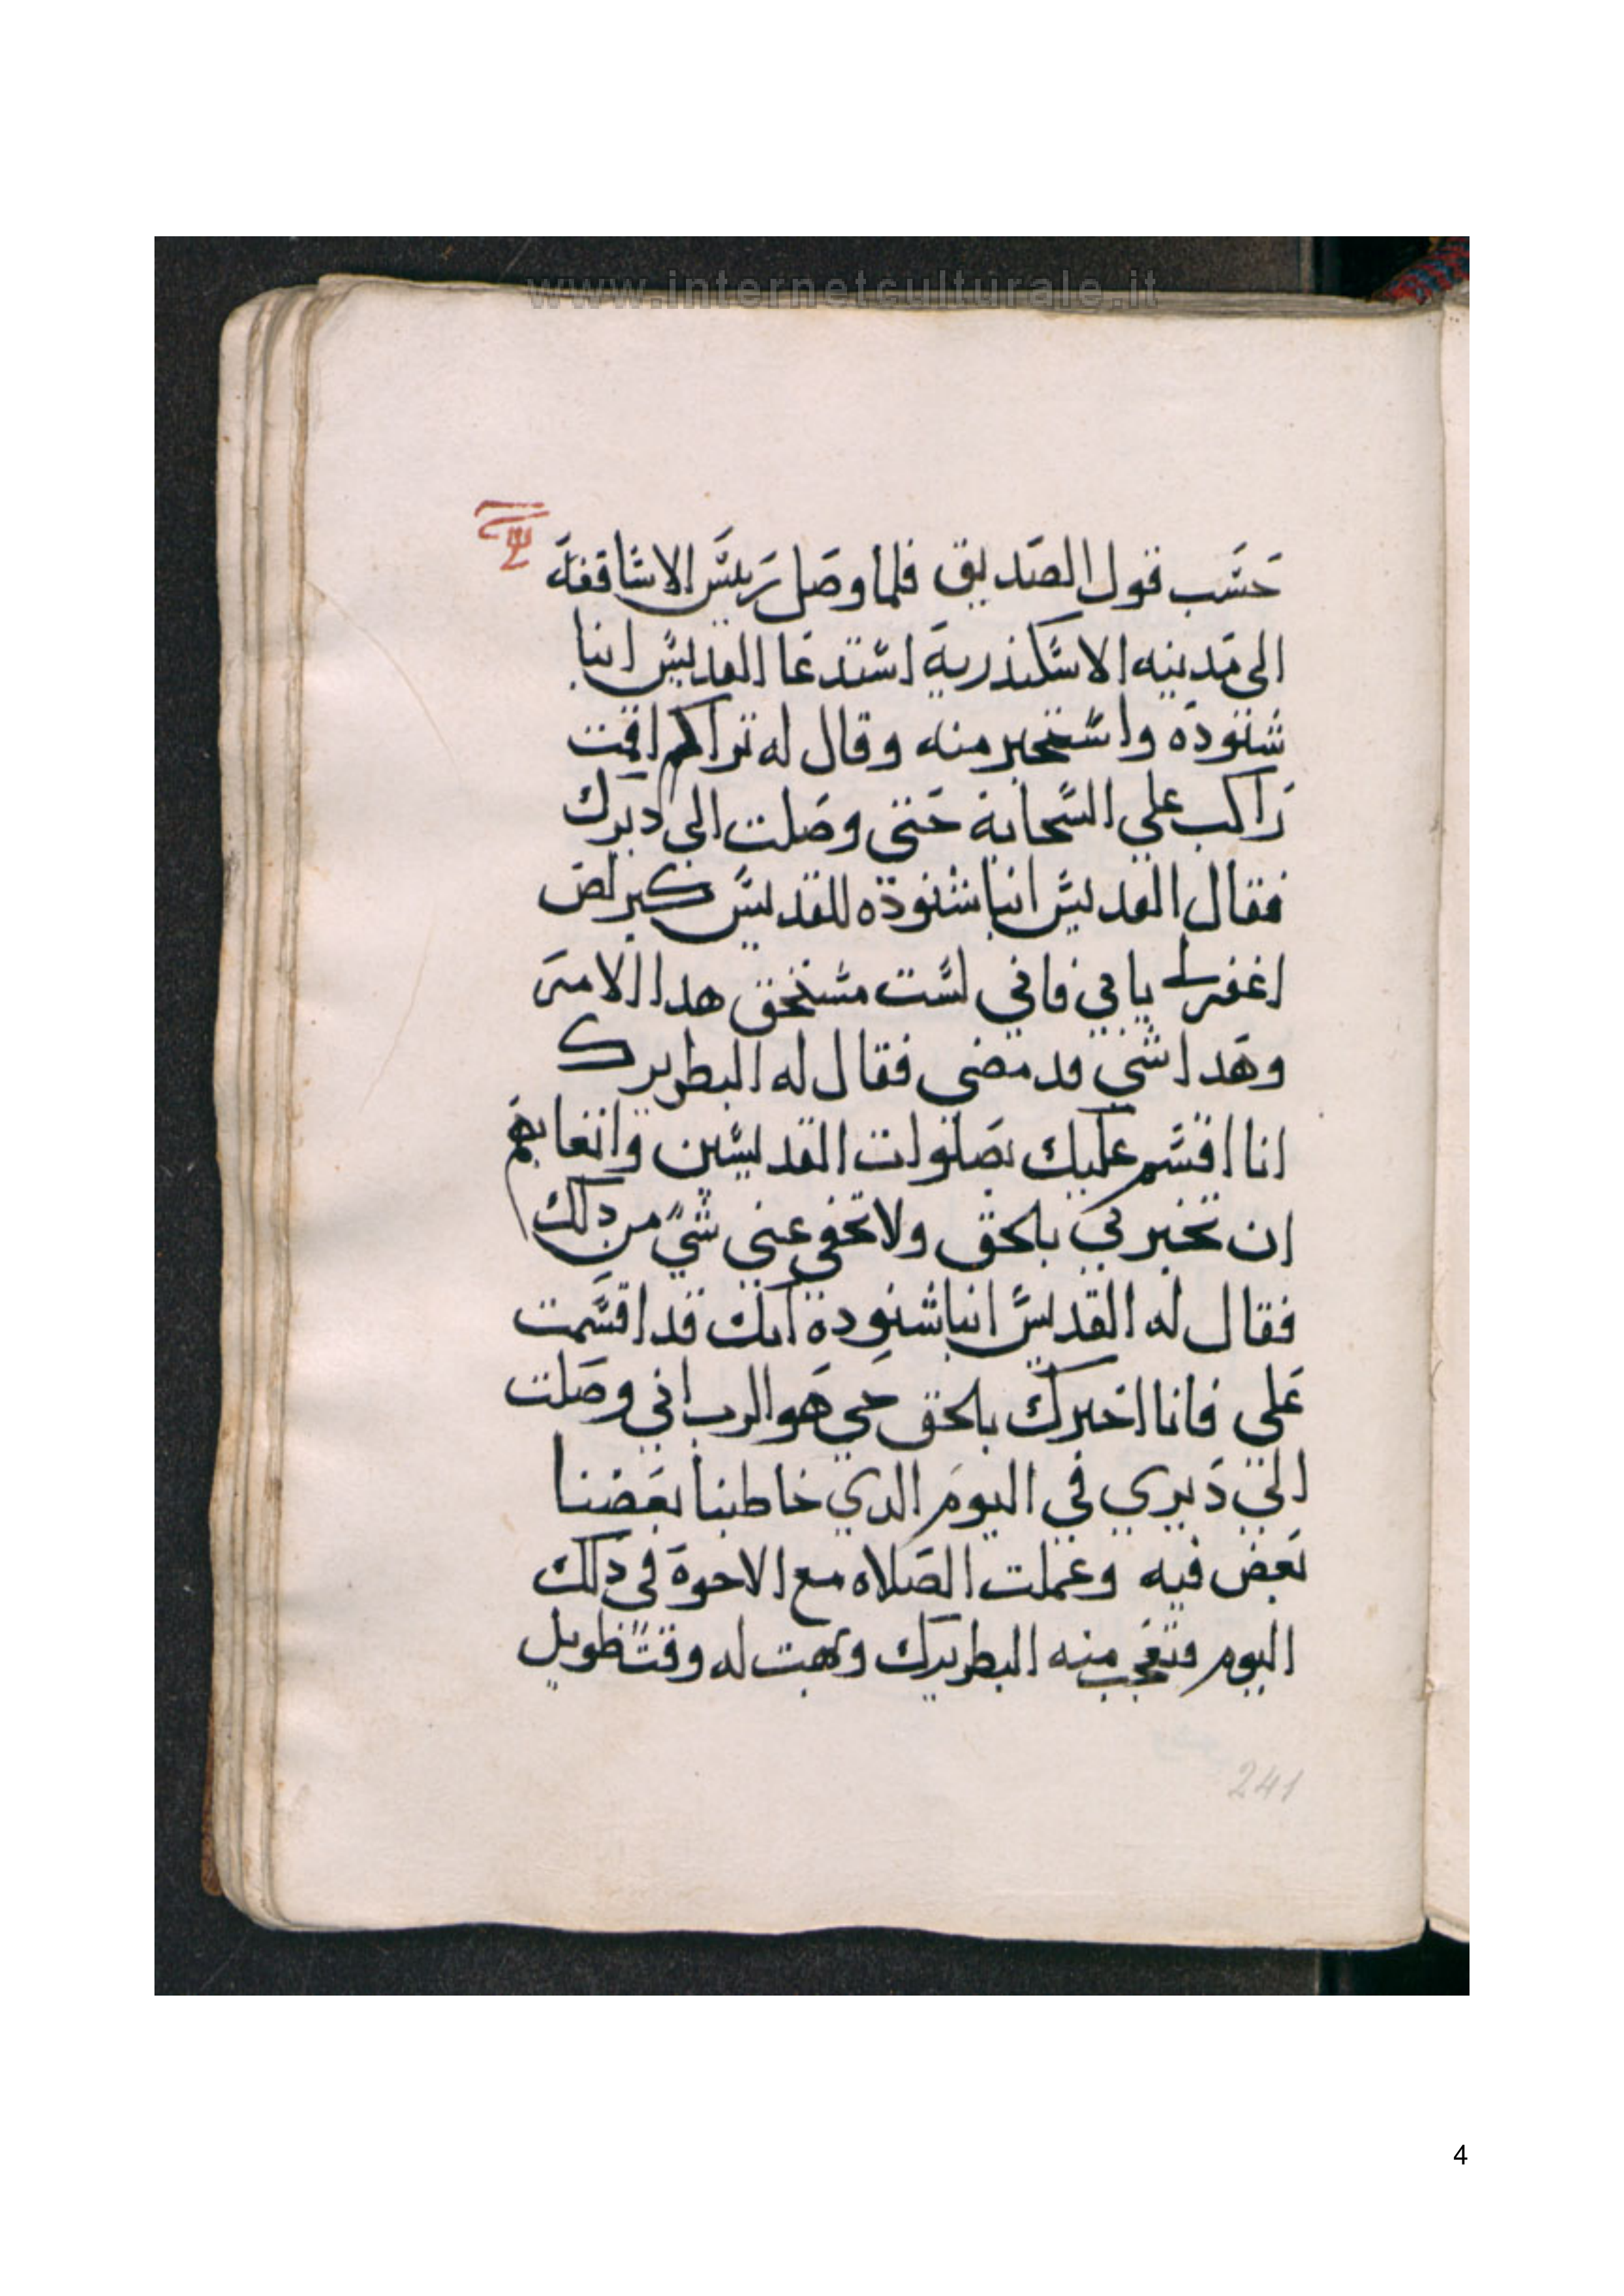 www.internetculturale.it
حسب قول الصديق فلما وصل ريس الاساقفة
الى مدينه الاسكندرية استدعا القديس انبا
شنوده واستخبر منه وقال له تراكم اقمت
راكب علي السحابة حتي وصلت الي ديرك
فقال القديس انبا شنوده للقديس كيرلص
اغفر لي يا ابي فاني لست مستحق هدا الامر
وهدا شي قد مضي فقال له البطريرك
انا اقسم عليك بصلوات القديسين واتعابهم
ان تخبرني بلحق ولا تخفي عني شيً من دلك
فقال له القديس انبا شنودة انك قد اقسمت
علي فانا اخبرك بالحق حي هو الرب اني وصلت
الي ديري في اليوم الدي خاطبنا بعضنا
بعض فيه وعملت الصلاه مع الاخوة في دلك
اليوم فتعجب منه البطريرك وبهت له وقتً طويل
241
4